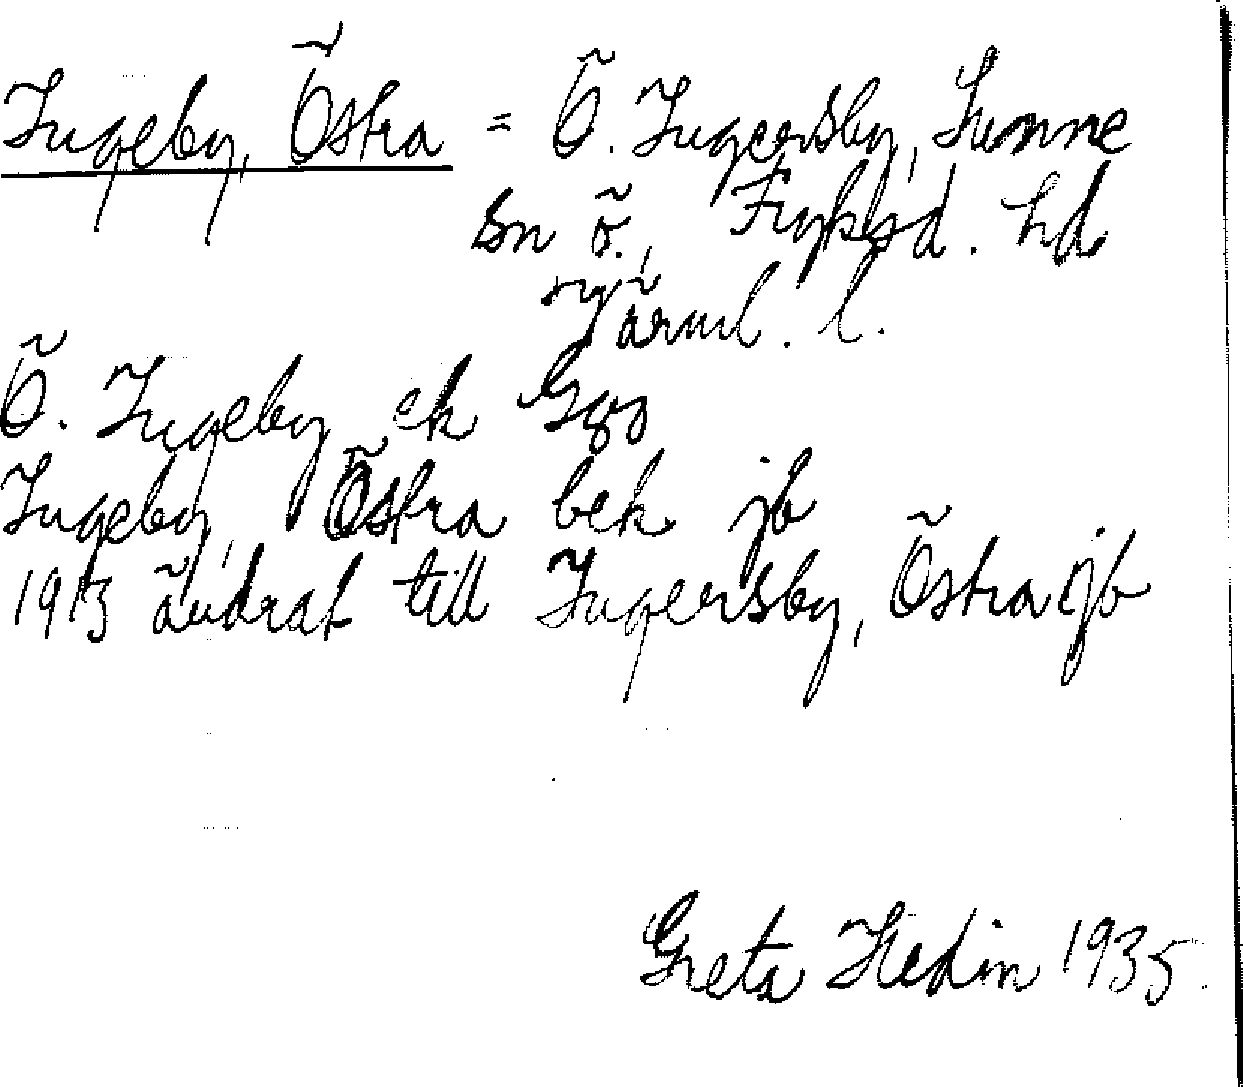 Ingeby, Östra = Ö. Ingersby, Sunne
sn ö., Fryksd. hd
Värml. l.
Ö. Ingeby ek Gg
Ingeby, Östra bek jb
1913 ändrat till Ingersby, Östra jb
Greta Hedin 1935.